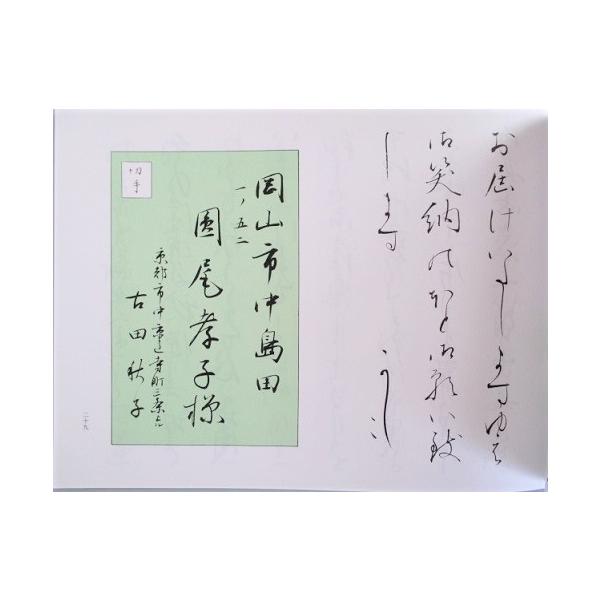 お届けいたしますゆゑ
御笑納のほど御願ひ致
します
かしこ
切手
岡山市中島田
一ノ五二
圓尾孝子様
京都市中京区寺町三条上
古田秋子
二十九